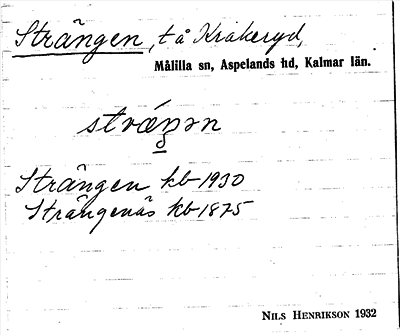 Strängen, t å Kråkeryd,
Målilla sn, Aspelands hd, Kalmar län.
stræŋən
Strängen kb 1930
Strängenäs kb 1875
NILS HENRIKSON 1932